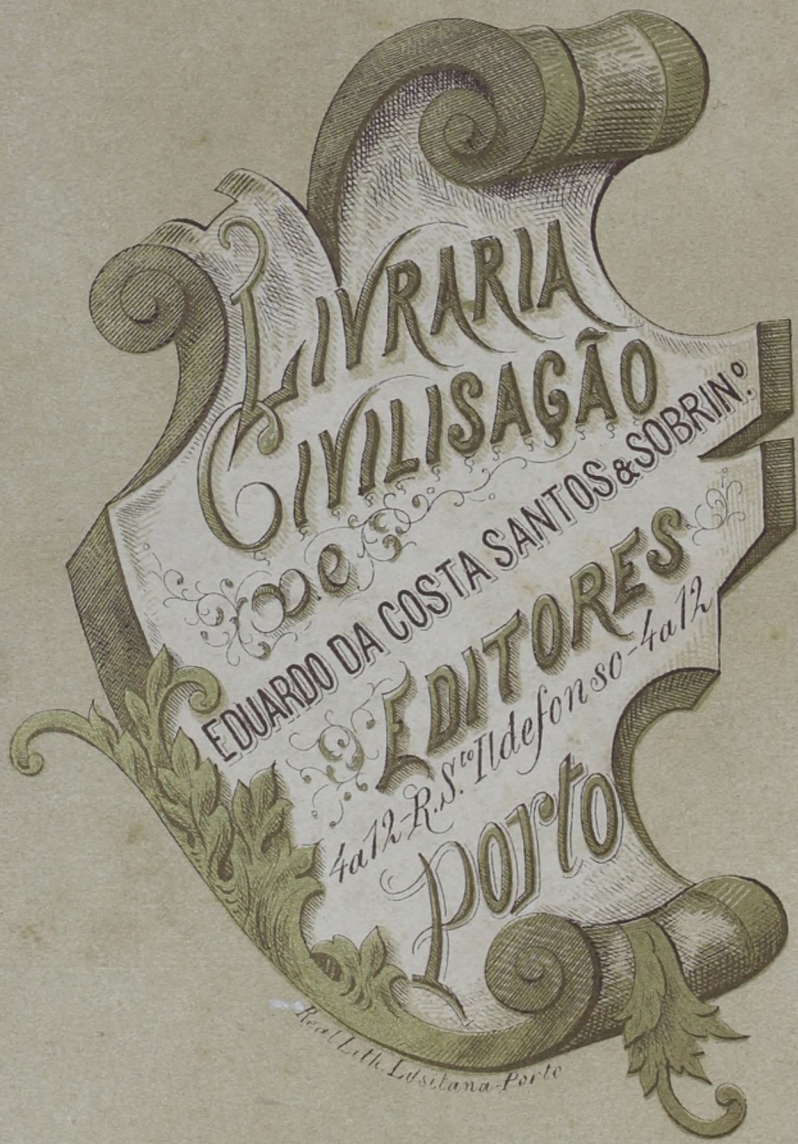 LIVRARIA
CIVILISAÇÃO
de
EDUARDO DA COSTA SANTOS & SOBRINº.
EDITORES
4a12-R.S.to Ildefonso-4a12
Porto
Real Lith. Lusitana-Porto